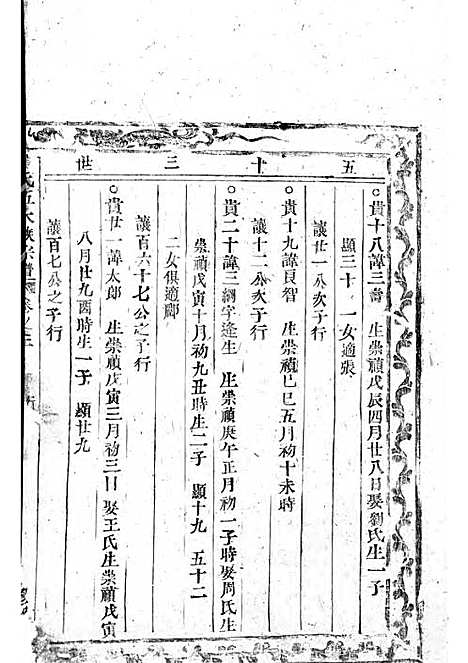 五十三世
○貴十八諱三睿　生崇禎戊辰四月廿八日娶劉氏生一子
顯三十　一女適張
讓廿一公次子行
○貴十九諱良智　生崇禎己巳五月初十未時
讓十二公次子行
○貴二十諱三綱字逢生　生崇禎庚午正月初一子時娶周氏生
崇禎戊寅十月初九丑時生二子　顯十九　五十二
二女俱適鄒
讓百六十七公之子行
○貴廿一諱太郎　生崇禎戊寅三月初三日　娶王氏生崇禎戊寅
八月廿九酉時生一子　顯廿九
讓百七公之子行
氏五大族宗譜　卷之三